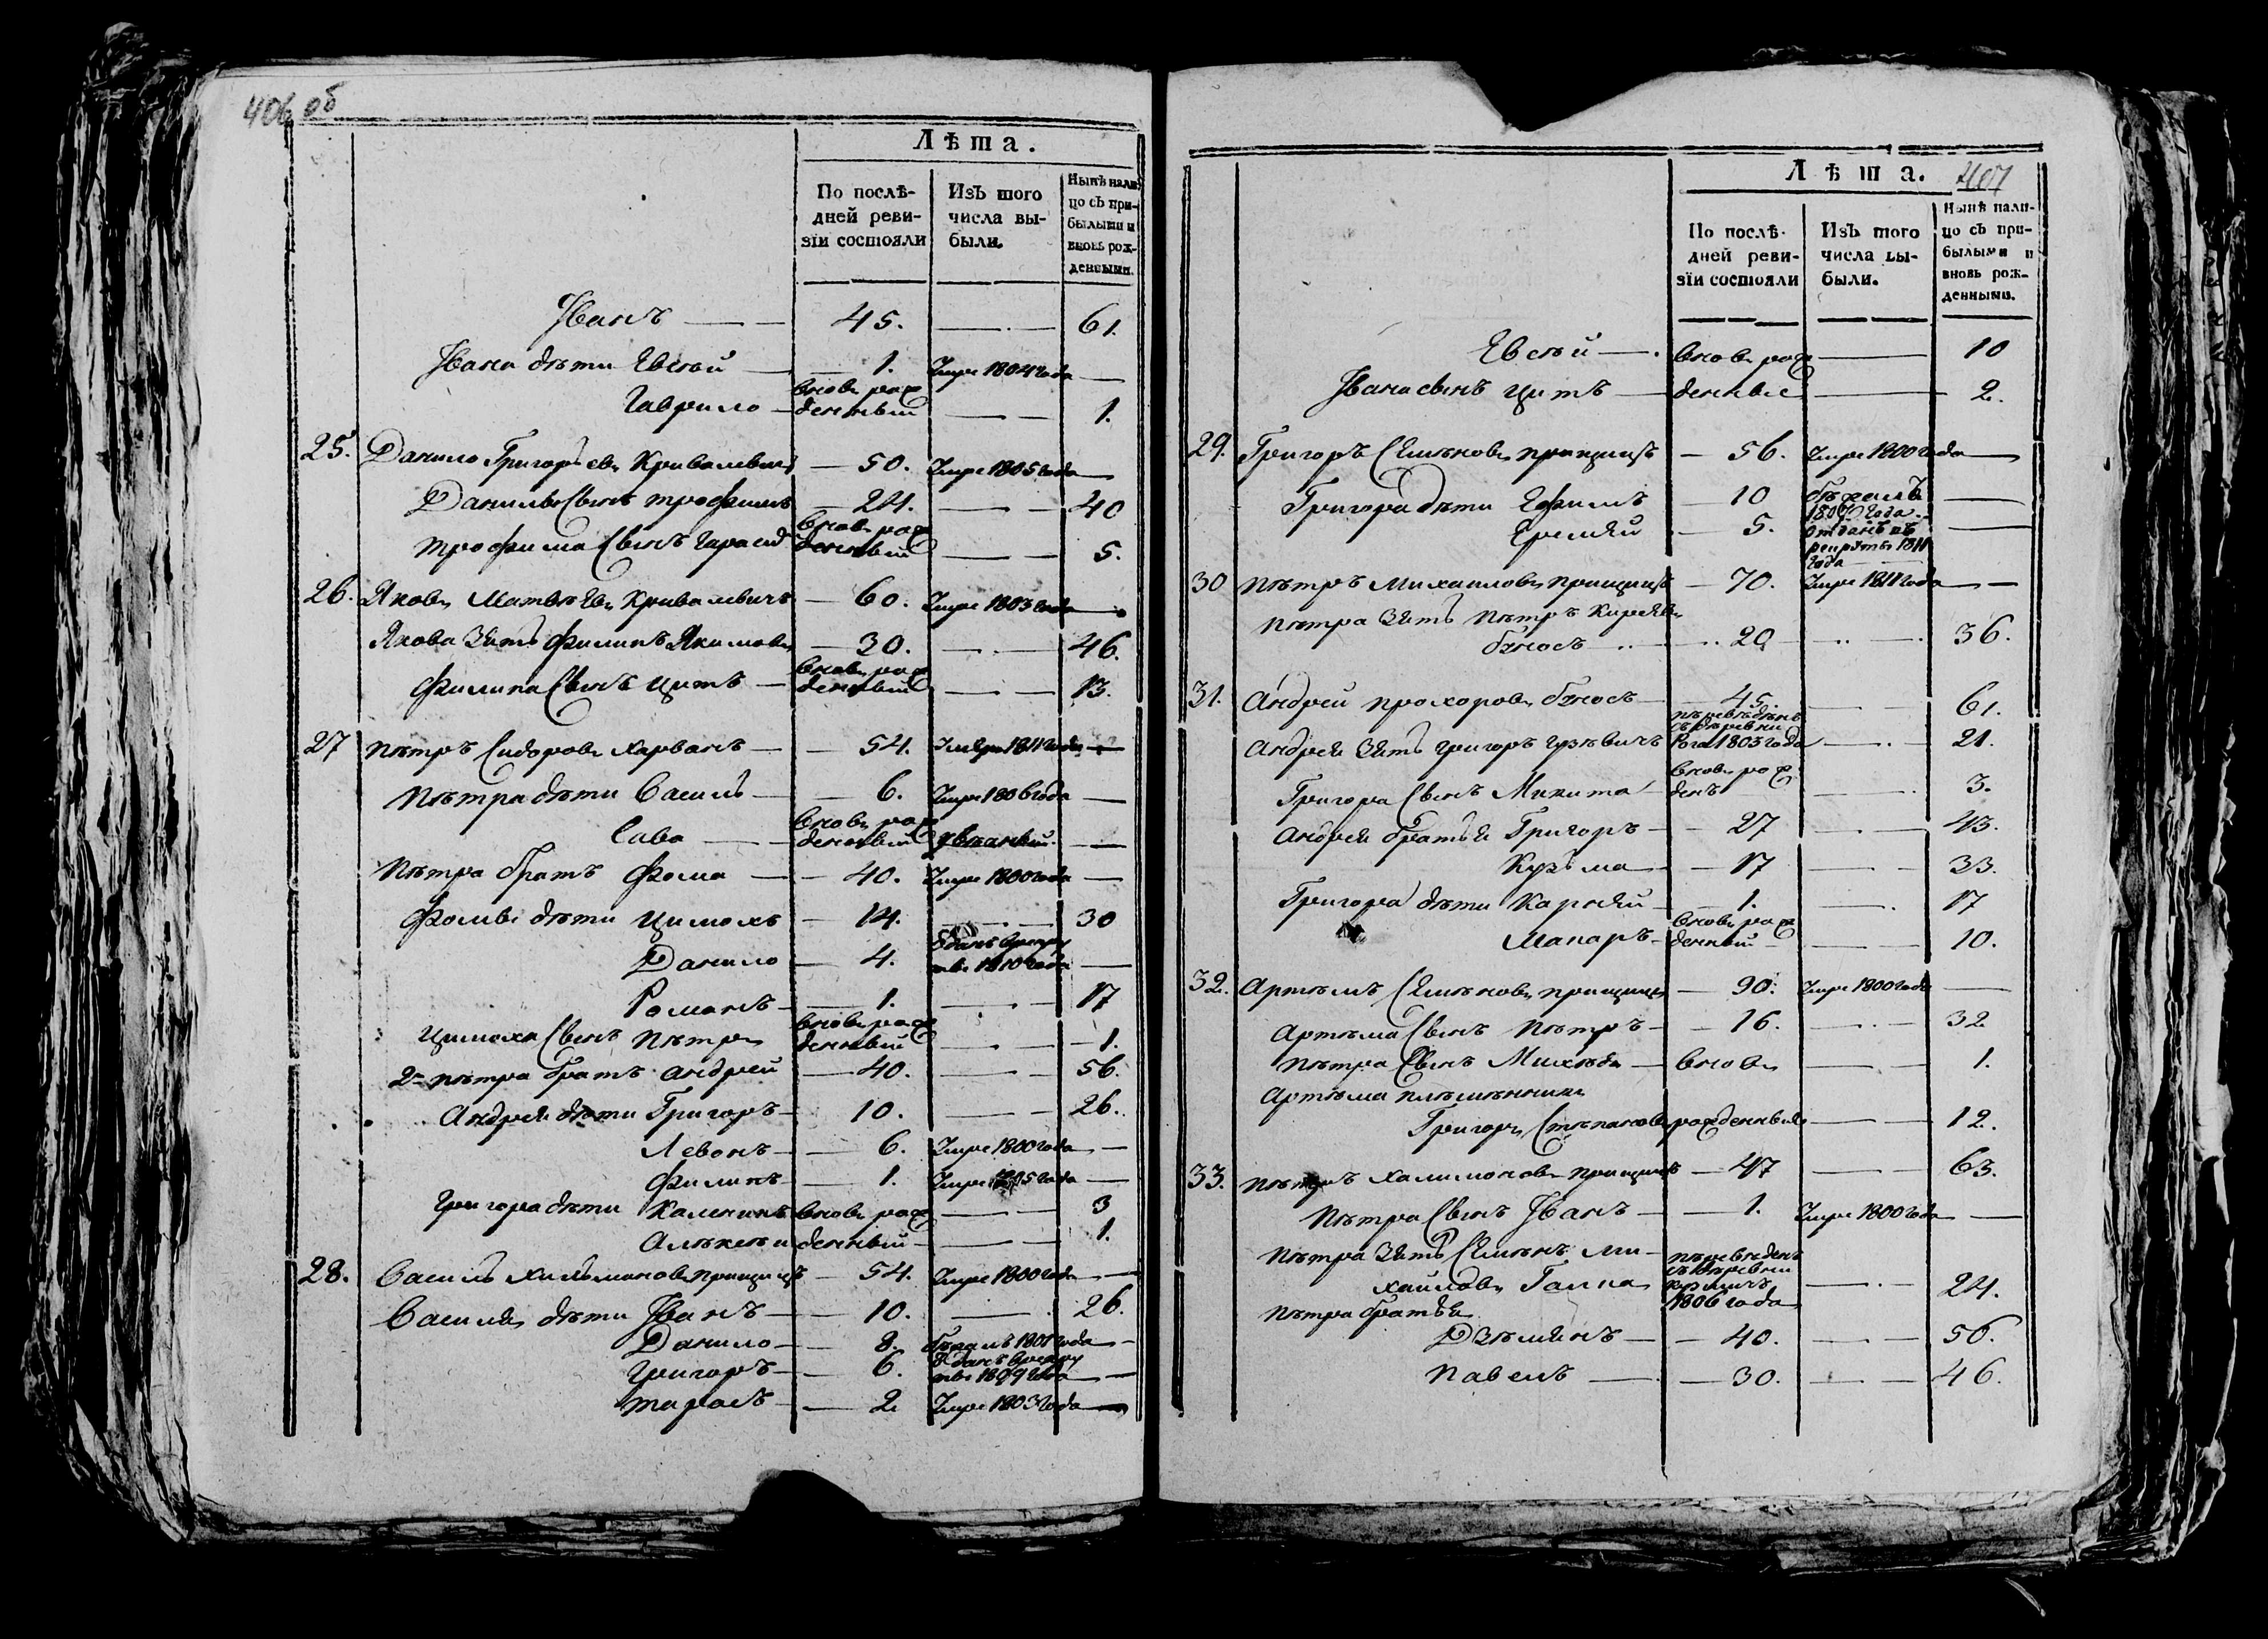 406 об
Лѣта.
По послѣ-
дней реви-
зіи состояли
Изъ того
числа вы-
были.
Нынѣ нали-
цо съ при-
былыми и
вновь рож-
денными.
Іванъ 45. 61.
Івана дѣти Евсѣй 1. Умре 1804 года
Гаврило вновь рожденный 1.
25. Данило Григорьевъ Кривалевичъ 50. Умре 1805 года
Данилы Сынъ Трофимъ 24. 40
Трофима Сынъ Гарасим вновь рожденный 5.
26. Яковъ Матвѣевъ Кривалевичъ 60. Умре 1803 года
Якова Зять Филипъ Якимовъ 30. 46.
Филипа Сынъ Цитъ вновь рожденный 13.
27 Пѣтръ Сидоровъ Харванъ 54. Умре 1811 года
Пѣтра дѣти Василь 6. Умре 1806 года
Сава вновь рожденный
Пѣтра братъ Фома 40. Умре 1800 года
Фомы дѣти Цимохъ 14. 30
Данило 4. Зданъ врекруты 1810 года
Романъ 1. 17
Цимоха Сынъ Пѣтръ вновь рожденный 1.
2й Пѣтра братъ Андрей 40. 56.
Андрея дѣти Григоръ 10. 26.
Левонъ 6. Умре 1800 года
Филипъ 1. Умре 1805 года
Григора дѣти Каленикъ вновь рож 3
Алѣксѣй денный 1.
28. Василь Халимоновъ Прищицъ 54. Умре 1800 года
Василя дѣти Іванъ 10. 26.
Данило 8. бѣжалъ 1801 года
Григоръ 6. Зданъ врекруты 1809 года
Тарасъ 2 Умре 1803 года
407
Лѣта.
По послѣ-
дней реви-
зіи состояли
Изъ того
числа вы-
были.
Нынѣ нали-
цо съ при-
былыми и
вновь рож-
денными.
Евсѣй вновь рож 10
Івана сынъ Цитъ денные 2.
29. Григоръ Сѣмѣновъ Прищицъ 56. Умре 1800 года
Григора дѣти Ефимъ 10 бѣжалъ 1807 года
Еремѣй 5. отданъ въ рекруты 1811 года
30 Пѣтръ Михаиловъ Прищицъ 70. Умре 1811 года
Пѣтра Зять Пѣтръ Кирѣевъ
бѫносъ 20 36.
31. Андрей Прохоровъ 45. 61.
Андрея Зять Григоръ Гузѣвичъ пѣревѣдѣнъ съ дѣревни Рога 1803 года 21.
Григора Сынъ Микита вновь рожденъ 3.
Андрея братья Григоръ 27 43.
Кузьма 17 33.
Григора дѣти Карнѣй 1. 17
Макаръ вновь рожденный 10.
32. Артѣмъ Сѣмѣновъ Прищицъ 90. Умре 1800 года
Артѣма Сынъ Пѣтръ 16. 32
Пѣтра Сынъ Михѣдъ вновь 1.
Артѣма плѣмѣнникъ
Григоръ Стѣпановъ рожденные 12.
33. Пѣтръ Халимоновъ Прищицъ 47 63.
Пѣтра Сынъ Іванъ 1. Умре 1800 года
Пѣтра Зять Сѣмѣнъ Ми-
хайловъ Гапка пѣревѣденъ съ дѣревни 1806 года 24.
Пѣтра братья
Дзѣмянъ 40. 56.
Павелъ 30. 46.